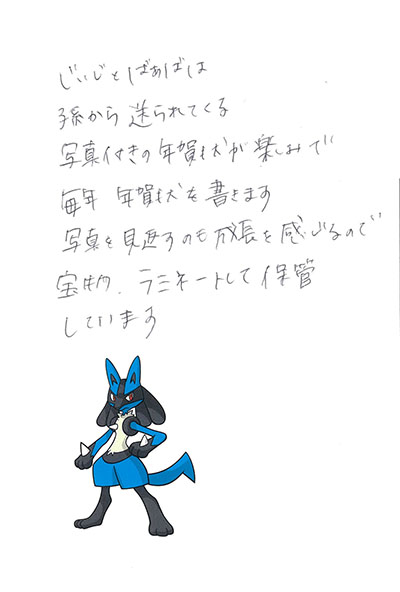 じいじとばあばは
孫から送られてくる
写真付きの年賀状が楽しみで
毎年 年賀状を書きます
写真を見返すのも成長を感じるので
宝物、ラミネートして保管
しています